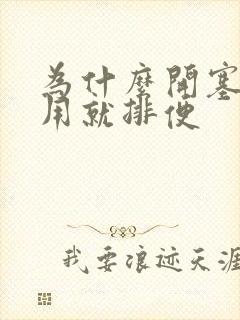 為什麼開塞
用就排便
我要浪迹天涯